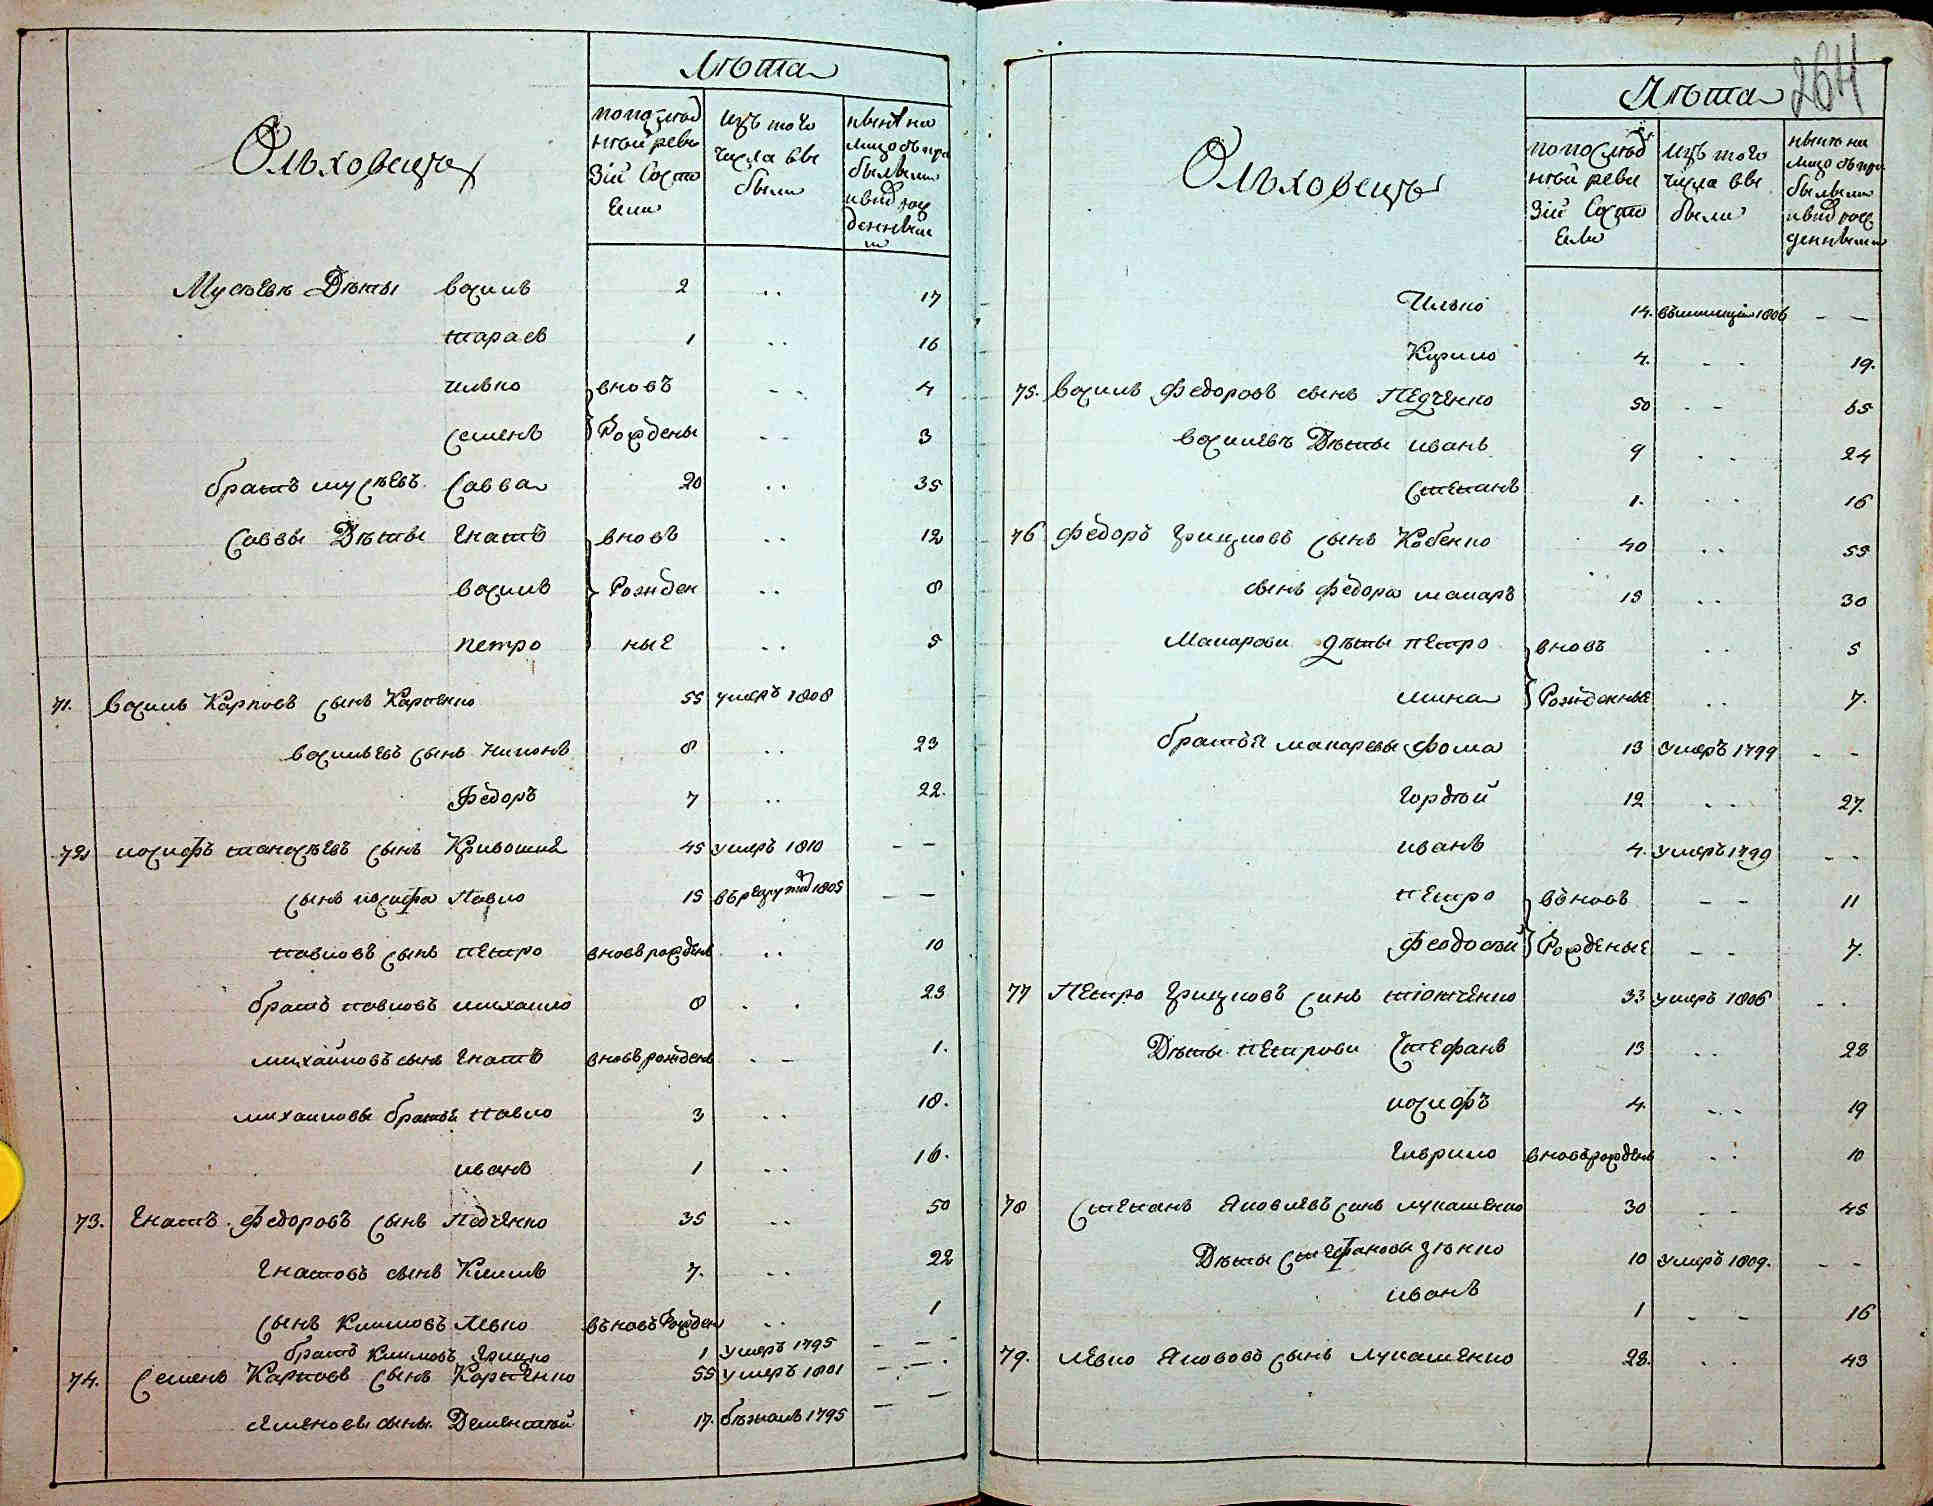 Лѣта
Ольховецъ
по послѣд ней реви зіи Состо яли
изъ того числа вы были
нынѣ на лицо съ при былыми и вновь рож денными
Мусѣевы Дѣти Василь 2 .. 17
Тарасъ 1 .. 16
Илько вновь - - 4
Семенъ Рождены - - 3
братъ мусѣевъ Савва 20 .. 35
Саввы Дѣти Гнатъ вновь .. 12
Василь Рожден .. 8
Петро ные .. 5
71. Василь Карповъ сынъ Карпенко 55 умеръ 1808
васильевъ сынъ Никонъ 8 .. 23
Федоръ 7 .. 22.
72 иосифъ сынъ 45 умеръ 1810 - -
сынъ иосифа Павло 15 въ рекруты 1805 - -
павловъ сынъ петро вновь рожденъ .. 10
братъ павловъ михайло 8 . . 23
михайловъ сынъ Гнатъ вновь рожденъ . - 1.
михайловы братья павло 3 .. 18.
иванъ 1 .. 16.
73. Гнатъ Федоровъ сынъ Педченко 35 .. 50
Гнатовъ сынъ Климъ 7. .. 22
сынъ Климовъ Левко вѣновь Рожден .. 1
братъ Климовъ Грицко 1 умеръ 1795 - - -
74. Семенъ Карповъ сынъ Карпенко 55 умеръ 1801 - - -
семеновы сыны Дементѣй 17. бѣжалъ 1795 - -
264
Лѣта
Ольховецъ
по послѣд ней реви зіи Состо яли
изъ того числа вы были
нынѣ на лицо съ при былыми и вновь рож денными
Илько 14. 1806 - -
Кирило 4. - - 19.
75. Василь Федоровъ сынъ Педченко 50 . - 65
васильевы Дѣти иванъ 9 . . 24
Степанъ 1. . . 16
76 Федоръ Грицковъ сынъ Кобенко 40 .. 55
сынъ Федора макаръ 15 .. 30
Макарови дѣти петро вновь .. 5
мина Рожденные .. 7.
братья макаревы Фома 13 умеръ 1799 - -
Гордѣй 12 . . 27.
иванъ 4. умеръ 1799 - -
петро вѣновь - - 11
Феодосѣй Рожденые - - 7.
77 Петро Грицковъ синъ 33 умеръ 1806 . .
Дѣти петрови Стефанъ 13 .. 28
иосифъ 4. .. 19
Гаврило вновь рожденъ .. 10
78 Степанъ Яковлевъ синъ лукашенко 30 - - 45
Дѣти стефановы Зѣнко 10 умеръ 1809. - -
иванъ 1 - - 16
79. левко Якововъ сынъ лукашенко 28. . . 43